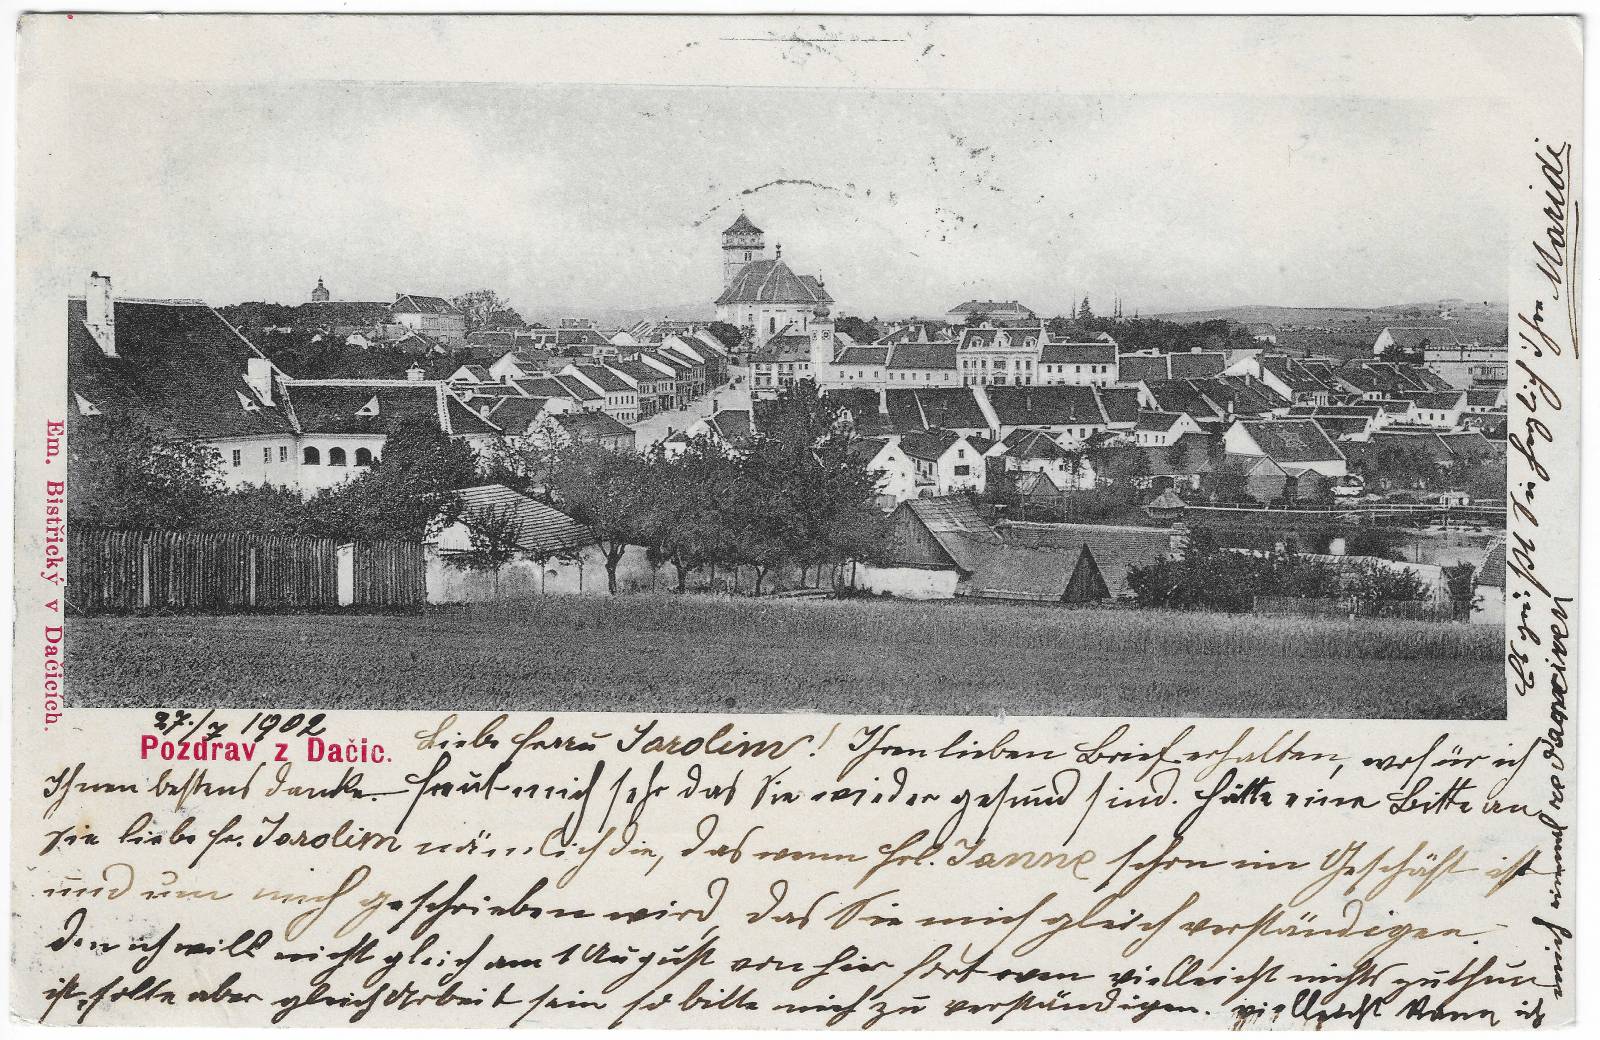 Em. Bistřický v Dačicích.
27./7 1902
Pozdrav z Dačic.
Liebe Frau Jarolim! Ihren lieben Brief erhalten, wofür ich
Ihnen bestens danke. Freut mich sehr das Sie wieder gesund sind. Hätte eine Bitte an
Sie liebe Fr. Jarolim nämlich die, das wenn Frl. Janne schon im Geschäft ist
und um mich geschrieben wird, das Sie mich gleich verständigen.
den ich will nicht gleich am 1 August von hier fort wenn vielleicht nichts zu thun
ist, sollte aber gleich Arbeit sein so bitte mich zu verständigen. vielleicht kann ich
Marie